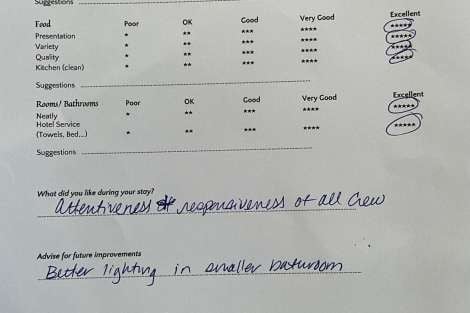 Suggestions
Food Poor OK Good Very Good Excellent
Presentation * ** *** **** *****
Variety * ** *** **** *****
Quality * ** *** **** *****
Kitchen (clean) * ** *** **** *****
Suggestions
Rooms/ Bathrooms Poor OK Good Very Good Excellent
Neatly * ** *** **** *****
Hotel Service
(Towels, Bed...) * ** *** **** *****
Suggestions
What did you like during your stay?
Attentiveness & responsiveness of all Crew
Advise for future improvements
Better lighting in smaller bathroom